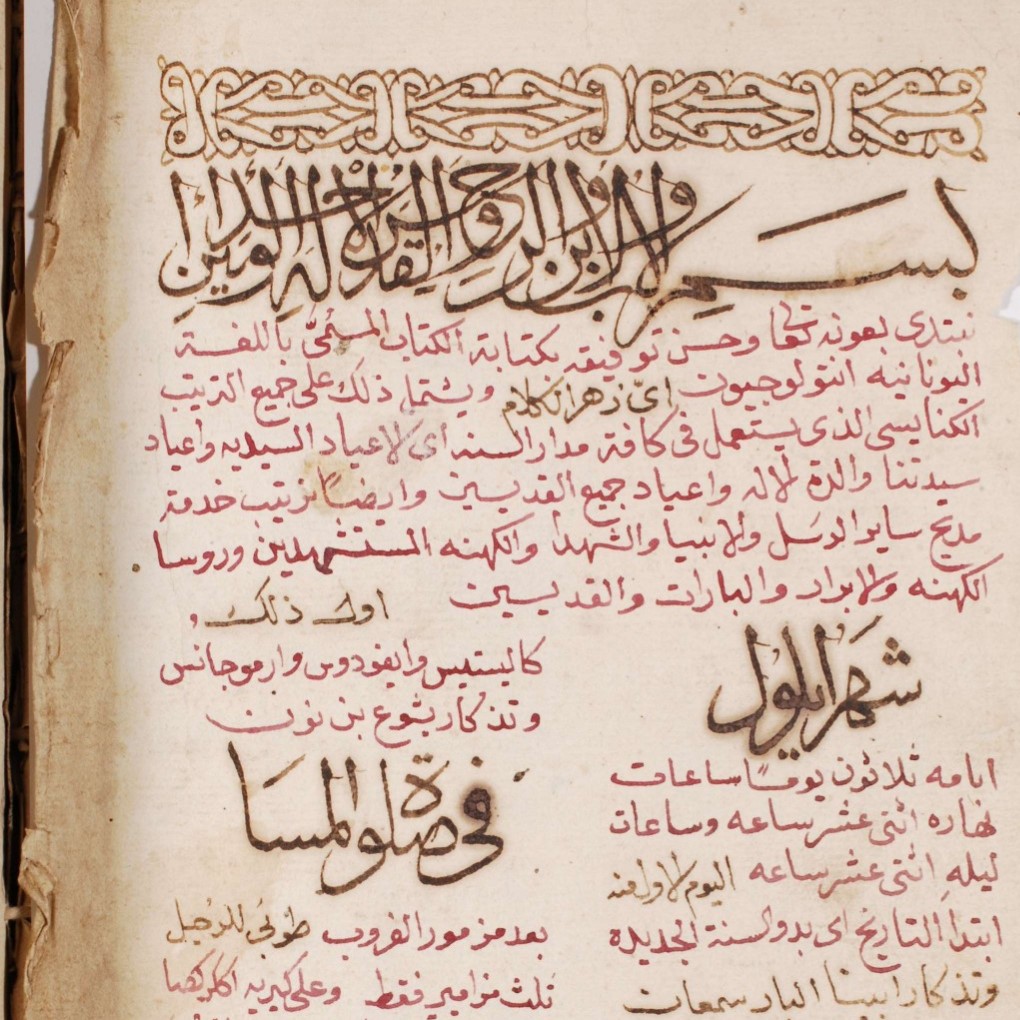 بسم الاب والابن والروح القدس الاله الواحد امين
نبتدى بعونه تعالى وحسن توفيقه بكتابة الكتاب المسمىّ باللغة
اليونانيه انتولوجيون اىّ زهر الكلام ويشتمل ذلك على جميع الترتيب
الكنايسى الذى يستعمل فى كافة مدار السنه اى الاعياد السيديه واعياد
سيدتنا والدة الاله واعياد جميع القديسين وايضاً ترتيب خدمة
مديح ساير الرسل والانبيا والشهدا والكهنه المستشهدين وروسا
الكهنه والابرار والبارات والقديسين اول ذلك
شهر ايلول
ايامه ثلاثون يوماً ساعات
نهاره اثنى عشر ساعه وساعات
ليله اثنى عشر ساعه اليوم الاول منه
ابتدا التاريخ اى بدو السنة الجديده
وتذكار ابينا البار سمعان
كاليستيس وايفودوس وارموجانس
وتذكار يشوع بن نون
فى صلوة المسا
بعد مزمور الغروب طوبى للرجل
ثلث مزامير فقط وعلى كيريه اكاركصا